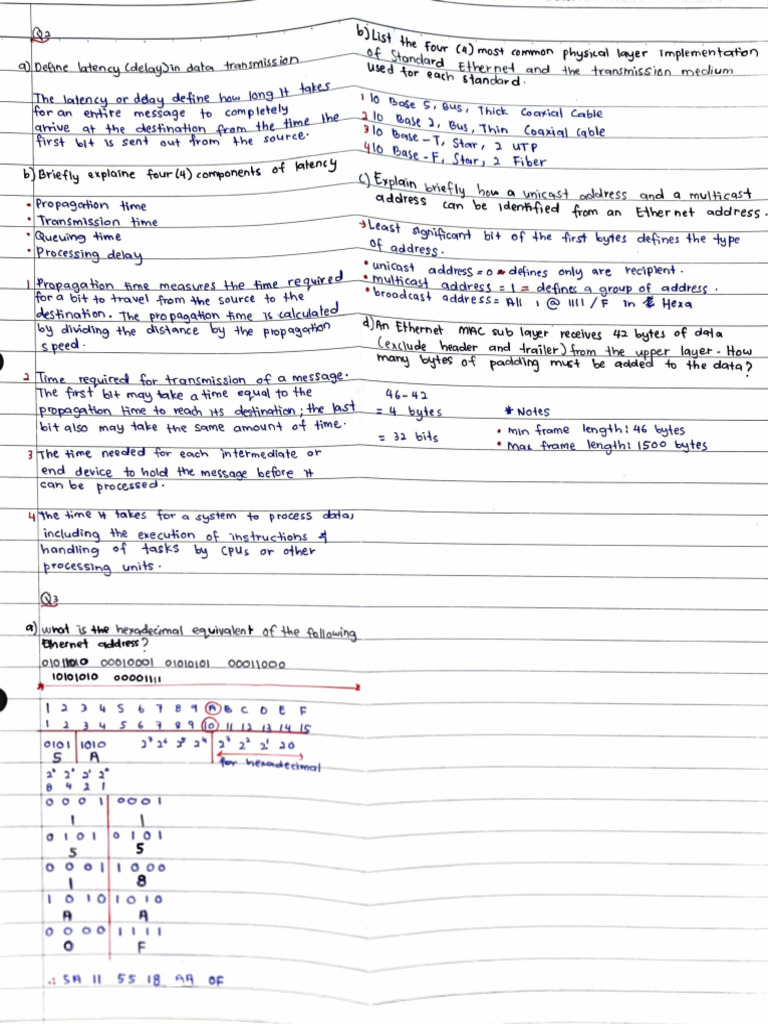 Q2
a) Define latency (delay) in data transmission
The latency or delay define how long it takes
for an entire message to completely
arrive at the destination from the time the
first bit is sent out from the source.
b) Briefly explaine four (4) components of latency
• Propagation time
• Transmission time
• Queuing time
• Processing delay
1 Propagation time measures the time required
for a bit to travel from the source to the
destination. The propagation time is calculated
by dividing the distance by the propagation
speed.
2 Time required for transmission of a message.
The first bit may take a time equal to the
propagation time to reach its destination; the last
bit also may take the same amount of time.
3 The time needed for each intermediate or
end device to hold the message before it
can be processed.
4 The time it takes for a system to process data,
including the execution of instructions &
handling of tasks by CPUs or other
processing units.
b) List the four (4) most common physical layer implementation
of Standard Ethernet and the transmission medium
used for each standard.
1 10 Base 5, Bus, Thick Coaxial Cable
2 10 Base 2, Bus, Thin Coaxial cable
3 10 Base-T, Star, 2 UTP
4 10 Base-F, Star, 2 Fiber
c) Explain briefly how a unicast address and a multicast
address can be identified from an Ethernet address.
→ Least significant bit of the first bytes defines the type
of address.
• unicast address = 0 = defines only are recipient.
• multicast address = 1 = define a group of address.
• broadcast address = All 1 @ 1111 / F in Hexa
d) An Ethernet MAC sub layer receives 42 bytes of data
(exclude header and trailer) from the upper layer. How
many bytes of padding must be added to the data?
46-42
= 4 bytes
= 32 bits
* Notes
• min frame length: 46 bytes
• max frame length: 1500 bytes
Q3
a) what is the hexadecimal equivalent of the following
Ethernet address?
01011010 00010001 01010101 00011000
10101010 00001111
1 2 3 4 5 6 7 8 9 A B C D E F
1 2 3 4 5 6 7 8 9 10 11 12 13 14 15
0101 1010 2⁷ 2⁶ 2⁵ 2⁴ 2³ 2² 2¹ 20
5 A for hexadecimal
2³ 2² 2¹ 2⁰
8 4 2 1
0 0 0 1 0 0 0 1
1 1
0 1 0 1 0 1 0 1
5 5
0 0 0 1 1 0 0 0
1 8
1 0 1 0 1 0 1 0
A A
0 0 0 0 1 1 1 1
0 F
∴ 5A 11 55 18 AA 0F